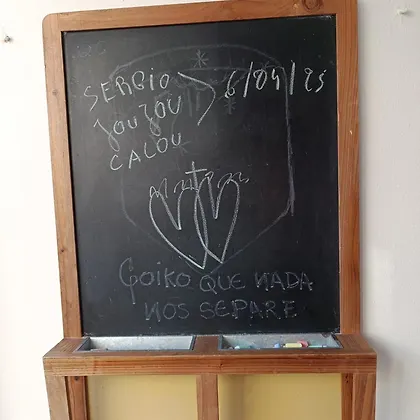 SERGIO
JOUJOU
CALOU
6/04/25
GOIKO QUE NADA
NOS SEPARE